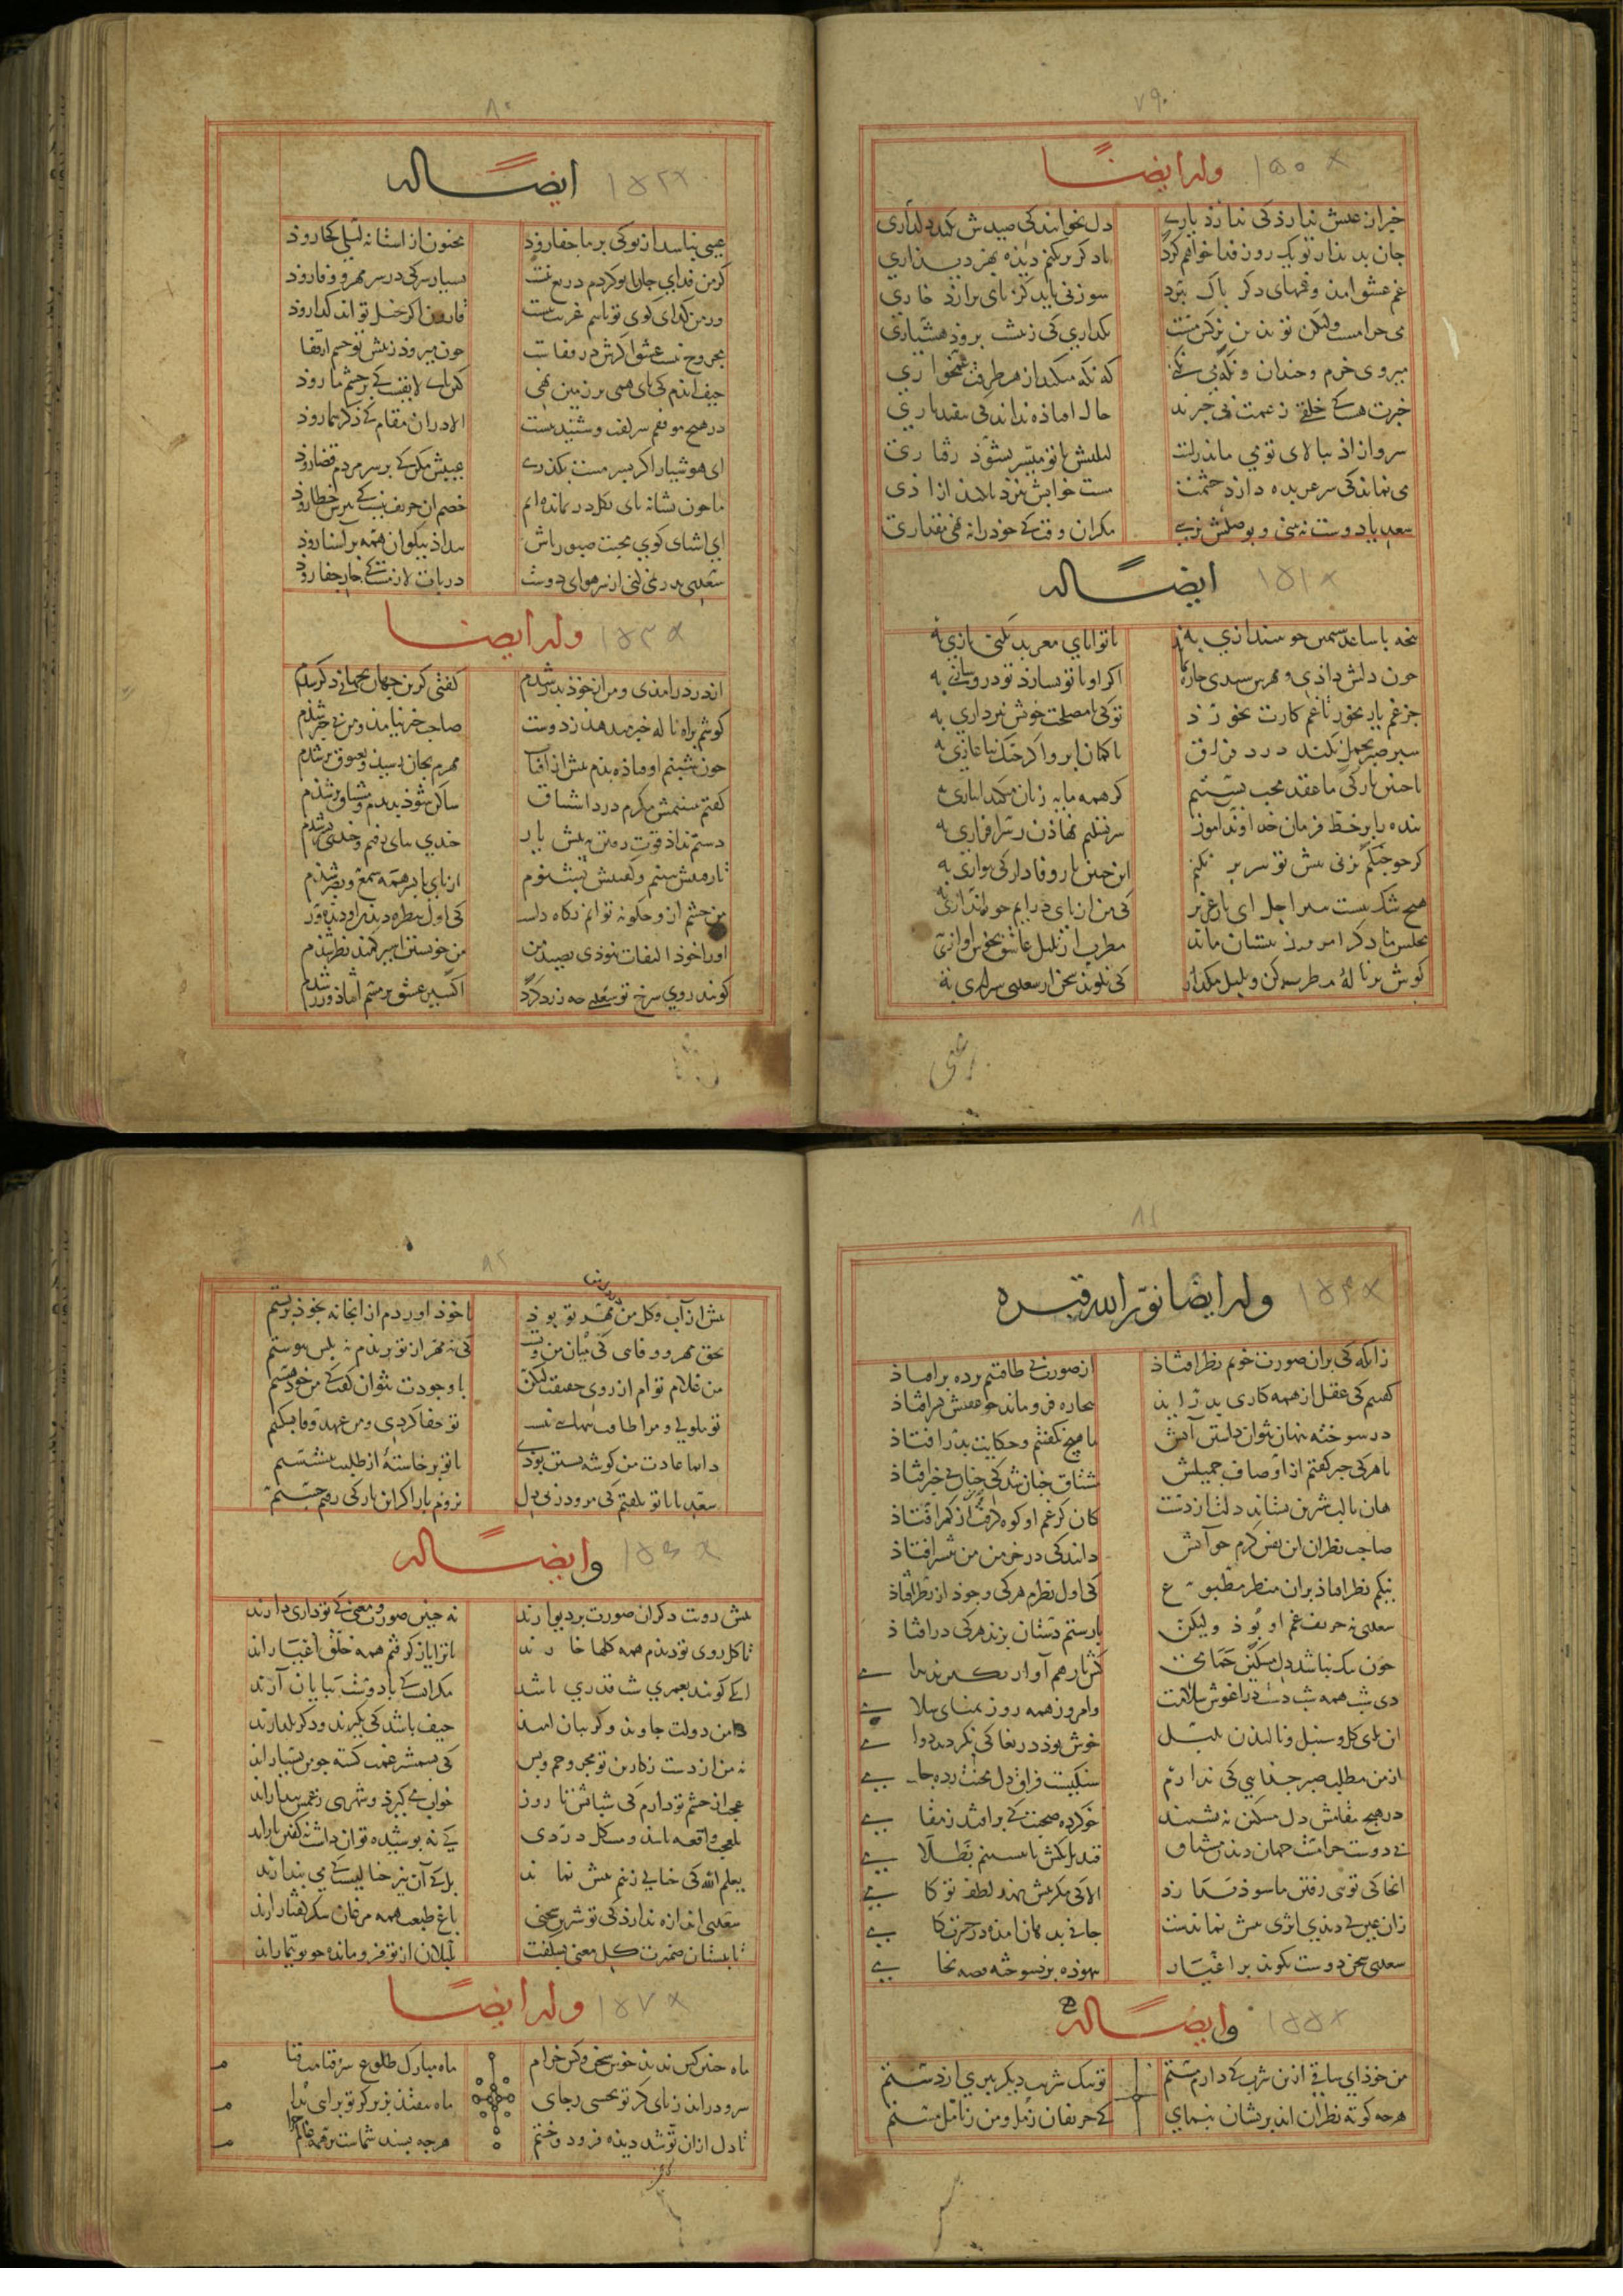 ۷۹
وله ایضا ۱۵۰
خبر از عیش ندارذ کی ندارذ یاری دل نخوانند کی صیدش نکند دلداری
جان بدیدار تو یک روز فدا خواهم کرد تا دکر برنکنم دیده بهر دیداری
غم عشق امد و غمهای دکر باک ببرد سوزنی باید کز بای برارذ خاری
می حرامست ولیکن تو بدین نرکس مست نکذاری کی زبیشت بروذ هشیاری
میروی خرم و خندان و نکه می نکنی که نکه میکند از هر طرفت غمخواری
خبرت هست کی خلقی زغمت بی خبرند حال افتاذه نداند کی نیفتد باری
سرو ازاد ببالای تو می ماند راست لیکنش با تو میسر نشوذ رفتاری
می نماند کی سر عربده دارذ چشمت مست خوابش نبرذ تا نکند ازاری
سعدیا دوست نبینی و بوصلش نرسی مکر ان وقت کی خود را ننهی مقداری
ایضا له ۱۵۱
بنجه با ساعد سیمین جو نیندازی به با توانای معربد نکنی بازی به
جون دلش داذی و مهرش ستدی جاره نماند اکر او با تو نسازذ تو درو سازی به
جز غم یار مخور تا غم کارت بخورذ تو کی با مصلحت خویش نبردازی به
سبر صبر تحمل نکند درد فراق با کمان ابرو اکر جنک نیاغازی به
با جنین یار کی ما عقد محبت بستیم کر همه مایه زیان میکند انبازی به
بنده را بر خط فرمان خداوند امور سر تسلیم نهاذن ز سرافرازی به
کر جو جنکم بزنی بیش تو سر بر نکنم این جنین یار وفادار کی بنوازی به
هیج شک نیست بتیر اجل ای یار عزیز کی من از بای درایم جو تو اندازی به
مجلس ما دکر امروز ببستان ماند مطرب از بلبل عاشق بخوش اوازی به
کوش بر نالهٔ مطرب کن و بلبل بکذار کی نکویند سخن از سعدی شیرازی به
۸۰
ایضا له ۱۵۲
عیبی نباشد از تو کی بر ما جفا روذ مجنون از استانه لیلی کجا روذ
کر من فدای جان تو کردم دریغ نیست بسیار سر کی در سر مهر و وفا روذ
ور من کدای کوی تو باشم غریب نیست قارون اکر بخیل تو اند کدا روذ
مجروح تیر عشق اکرش تیغ در قفاست جون میروذ زبیش تو جشم از قفا
حیف ایدم کی بای همی بر زمین نهی کین بای لایقست کی بر جشم ما روذ
در هیج موقفم سر کفت و شنید نیست الا دران مقام کی ذکر شما روذ
ای هوشیار اکر بسر مست بکذری عیبش مکن کی بر سر مردم قضا روذ
ما جون نشانه بای بکل در بمانده ایم خصم ان حریف نیست کی تیرش خطا روذ
ای اشنای کوی محبت صبور باش بیداذ نیکوان همه بر آشنا روذ
سعدی بدر نمی کنی از سر هوای دوست در بات لازمست کی خار جفا روذ
وله ایضا ۱۵۳
از در درامدی و من از خوذ بدر شدم کفتی کزین جهان بجهانی دکر شدم
کوشم براه تا که خبر میدهد ز دوست صاحب خبر بیامذ و من بی خبر شدم
جون شبنم اوفتاذه بدم بیش آفتاب مهرم بجان رسید و بعیوق بر شدم
کفتم ببینمش مکرم درد اشتیاق ساکن شوذ بدیدم و مشتاق تر شذم
دستم نداذ قوت رفتن به بیش یار جندی ببای رفتم و جندی بسر شدم
تا رفتنش ببینم و کفتنش بشنوم از بای تا بسر همه سمع و بصر شذم
من جشم ازو جکونه توانم نکاه داشت کی اول نظر بدیدن او دیده ور
او را خوذ التفات نبوذی بصید من من خویشتن اسیر کمند نظر شذم
کویند روی سرخ تو سعدی جه زرد کرد اکسیر عشق بر مسم افتاذ و زر شدم
۸۱
وله ایضا نور الله قبره ۱۵۴
زانکه کی بران صورت خوبم نظر افتاذ از صورت بی طاقتیم برده برافتاذ
کفتیم کی عقل از همه کاری بدر اید بیجاره فروماند جو عشقش بسر افتاذ
در سوخته بنهان نتوان داشتن آتش ما هیج نکفتیم و حکایت بدر افتاذ
با هرکی خبر کفتم از اوصاف جمیلش مشتاق جنان شد کی جو من بی خبر افتاذ
هان تا لب شیرین نستاند دلت از دست کان کز غم او کوه کرفت از کمر افتاذ
صاحب نظران این نفس کرم جو آتش دانند کی در خرمن من بیشتر افتاذ
نیکم نظر افتاذ بران منظر مطبوع کی اول نظرم هرکی وجوذ از نظر افتاذ
سعدی نه حریف غم او بوذ ولیکن با رستم دستان بزند هرکی در افتاذ
جون تنک نباشد دل مسکین حمامی کش یار هم آواز بکیرند بدامی
دی شب همه شب دست در اغوش سلامت وامروز همه روز تمنای سلامی
ان بوی کل و سنبل و نالیدن بلبل خوش بوذ دریغا کی نکردند دوامی
از من مطلب صبر جدایی کی ندارم سنکیست فراق و دل محنت زده جامی
در هیج مقامش دل مسکین نه نشیند خو کرده صحبت کی برافتد ز مقامی
بی دوست حرامست جهان دیدن مشتاق قندیل بکش تا بنشینم بظلامی
انجا کی توی رفتن ما سوذ ندارذ الا کی مکر بیش نهد لطف تو کامی
زان عین کی دیدی اثری بیش نماندست جانی بدهان امده در حسرت کامی
سعدی سخن دوست نکویند بر اغیار بیهوذه نبرد سوخته قصه بخامی
وایضا له ۱۵۵
من خوذ ای ساقی ازین شوق کی دارم مستم تو بیک شربت دیکر ببری از دستم
هرجه کوته نظران اند بریشان بیمای کی حریفان ز مل و من ز تامل مستم
۸۲
بیش از آب و کل من مهر تو بوذ با خوذ اوردم از انجا نه بخوذ بربستم
بحق مهر و وفای کی میان من و تست کی نه مهر از تو بریدم نه بکس بیوستم
من غلام توام از روی حقیقت لیکن با وجودت نتوان کفت کی من خوذ هستم
تو ملولی و مرا طاقت تنهایی نیست تو جفا کردی و من عهد وفا نشکستم
دایما عادت من کوشه نشستن بوذی تا تو برخاستهٔ از طلبت ننشستم
سعدیا با تو نکفتم کی مرو در بی دل نروم باز اکر این بار کی رفتم جستم
وایضا له ۱۵۶
بیش رویت دکران صورت بر دیوارند نه جنین صورت و معنی کی تو داری دارند
تا کل روی تو دیدم همه کلها خارند تا ترا یار کرفتم همه خلق اغیارند
انکی کویند بعمری شب قدری باشد مکر انست کی با دوست بپایان آرند
دامن دولت جاوید و کریبان امید حیف باشد کی بکیرند و دکر بکذارند
نه من از دست نکارین تو مجروحم و بس کی بشمشیر غمت کشته جو من بسیارند
عجب از جشم تو دارم کی شبانش تا روز خواب می کیرذ و شهری ز غمش بیدارند
بلعجب واقعه باشد و مشکل دردی کی نه بوشیده توان داشت نه کفتن یارند
یعلم الله کی خیالی ز تنم بیش نماند بل کی آن نیز خیالیست کی می بندارند
سعدی اندازه ندارذ کی تو شیرین سخنی باغ طبعت همه مرغان شکر کفتارند
تا ببستان ضمیرت کل معنی بشکفت بلبلان از تو فرومانده جو بوتیمارند
وله ایضا ۱۵۷
ماه جنین کس ندید خوش سخن و کش خرام ماه مبارک طلوع سرو قیامت قیام
سرو دراید زبای کر تو بجنبی زجای ماه بیفتد بزیر کر تو برایی ببام
تا دل ازان تو شد دیده فرو دوختم هرجه بسند شماست بر همه عالم حرام